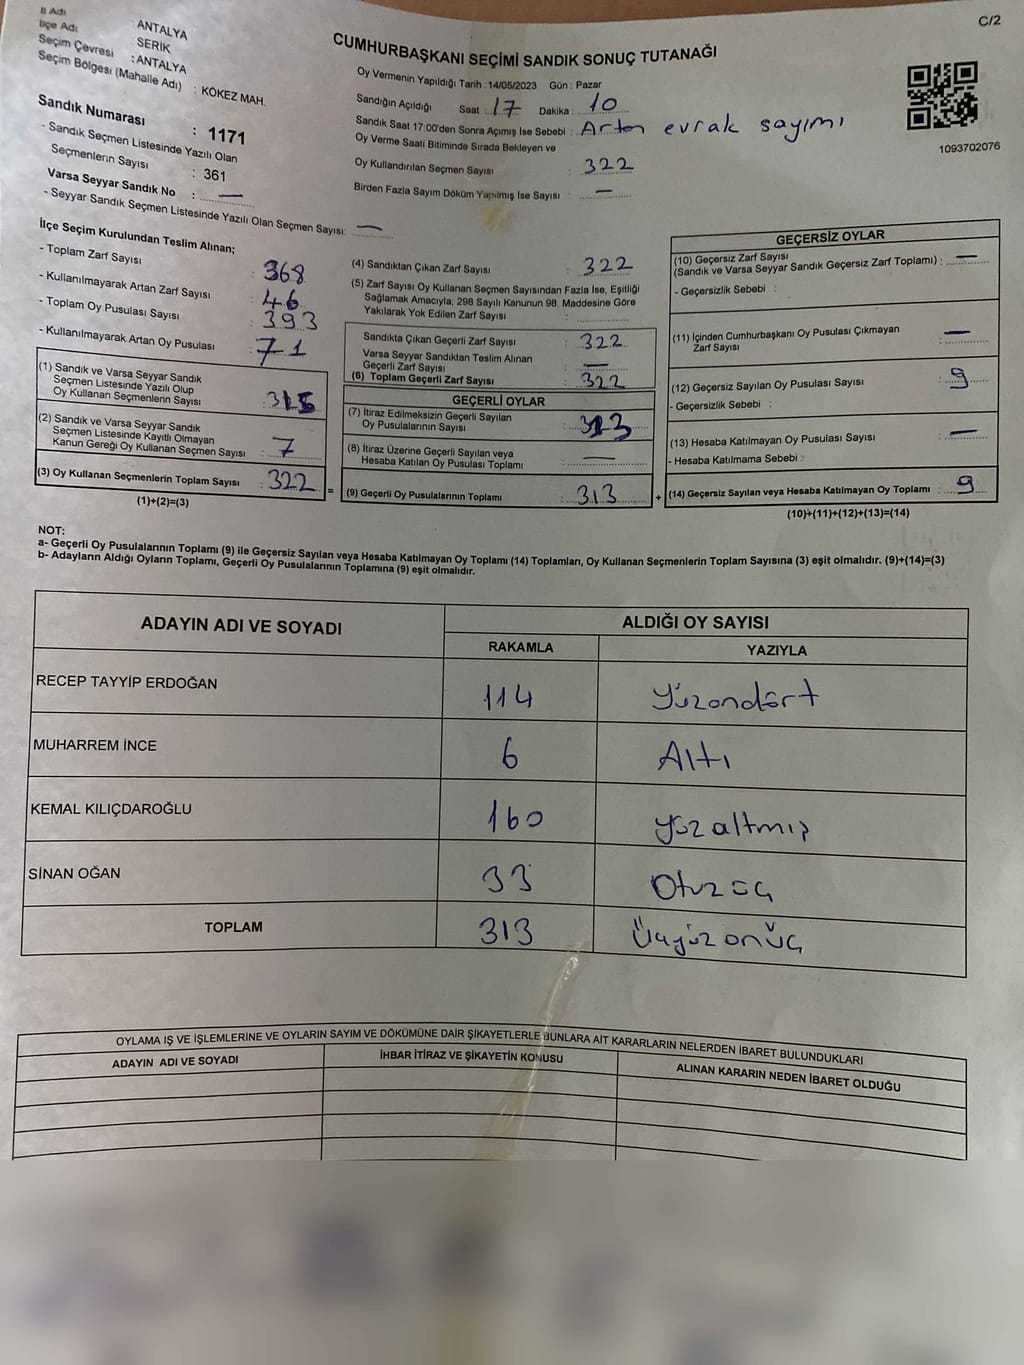 C/2
İl Adı : ANTALYA
İlçe Adı : SERİK
Seçim Çevresi : ANTALYA
Seçim Bölgesi (Mahalle Adı) : KÖKEZ MAH.
Sandık Numarası : 1171
- Sandık Seçmen Listesinde Yazılı Olan
Seçmenlerin Sayısı : 361
Varsa Seyyar Sandık No : —
- Seyyar Sandık Seçmen Listesinde Yazılı Olan Seçmen Sayısı: —
CUMHURBAŞKANI SEÇİMİ SANDIK SONUÇ TUTANAĞI
Oy Vermenin Yapıldığı Tarih : 14/05/2023 Gün : Pazar
Sandığın Açıldığı Saat : 17 Dakika : 10
Sandık Saat 17:00'den Sonra Açılmış İse Sebebi : Artan evrak sayımı
Oy Verme Saati Bitiminde Sırada Bekleyen ve
Oy Kullandırılan Seçmen Sayısı : 322
Birden Fazla Sayım Döküm Yapılmış İse Sayısı : —
1093702076
İlçe Seçim Kurulundan Teslim Alınan;
- Toplam Zarf Sayısı : 368
- Kullanılmayarak Artan Zarf Sayısı : 46
- Toplam Oy Pusulası Sayısı : 393
- Kullanılmayarak Artan Oy Pusulası : 71
(1) Sandık ve Varsa Seyyar Sandık
Seçmen Listesinde Yazılı Olup
Oy Kullanan Seçmenlerin Sayısı : 315
(2) Sandık ve Varsa Seyyar Sandık
Seçmen Listesinde Kayıtlı Olmayan
Kanun Gereği Oy Kullanan Seçmen Sayısı : 7
(3) Oy Kullanan Seçmenlerin Toplam Sayısı : 322 =
(1)+(2)=(3)
(4) Sandıktan Çıkan Zarf Sayısı : 322
(5) Zarf Sayısı Oy Kullanan Seçmen Sayısından Fazla İse, Eşitliği
Sağlamak Amacıyla, 298 Sayılı Kanunun 98. Maddesine Göre
Yakılarak Yok Edilen Zarf Sayısı :
Sandıkta Çıkan Geçerli Zarf Sayısı : 322
Varsa Seyyar Sandıktan Teslim Alınan
Geçerli Zarf Sayısı : —
(6) Toplam Geçerli Zarf Sayısı : 322
GEÇERLİ OYLAR
(7) İtiraz Edilmeksizin Geçerli Sayılan
Oy Pusulalarının Sayısı : 313
(8) İtiraz Üzerine Geçerli Sayılan veya
Hesaba Katılan Oy Pusulası Toplamı : —
(9) Geçerli Oy Pusulalarının Toplamı : 313 +
GEÇERSİZ OYLAR
(10) Geçersiz Zarf Sayısı
(Sandık ve Varsa Seyyar Sandık Geçersiz Zarf Toplamı) : —
- Geçersizlik Sebebi :
(11) İçinden Cumhurbaşkanı Oy Pusulası Çıkmayan
Zarf Sayısı : —
(12) Geçersiz Sayılan Oy Pusulası Sayısı : 9
- Geçersizlik Sebebi :
(13) Hesaba Katılmayan Oy Pusulası Sayısı : —
- Hesaba Katılmama Sebebi :
(14) Geçersiz Sayılan veya Hesaba Katılmayan Oy Toplamı : 9
(10)+(11)+(12)+(13)=(14)
NOT:
a- Geçerli Oy Pusulalarının Toplamı (9) ile Geçersiz Sayılan veya Hesaba Katılmayan Oy Toplamı (14) Toplamları, Oy Kullanan Seçmenlerin Toplam Sayısına (3) eşit olmalıdır. (9)+(14)=(3)
b- Adayların Aldığı Oyların Toplamı, Geçerli Oy Pusulalarının Toplamına (9) eşit olmalıdır.
ADAYIN ADI VE SOYADI ALDIĞI OY SAYISI
RAKAMLA YAZIYLA
RECEP TAYYİP ERDOĞAN 114 Yüzondört
MUHARREM İNCE 6 Altı
KEMAL KILIÇDAROĞLU 160 yüzaltmış
SİNAN OĞAN 33 Otuzüç
TOPLAM 313 Üçyüzonüç
OYLAMA İŞ VE İŞLEMLERİNE VE OYLARIN SAYIM VE DÖKÜMÜNE DAİR ŞİKAYETLERLE BUNLARA AİT KARARLARIN NELERDEN İBARET BULUNDUKLARI
ADAYIN ADI VE SOYADI İHBAR İTİRAZ VE ŞİKAYETİN KONUSU ALINAN KARARIN NEDEN İBARET OLDUĞU